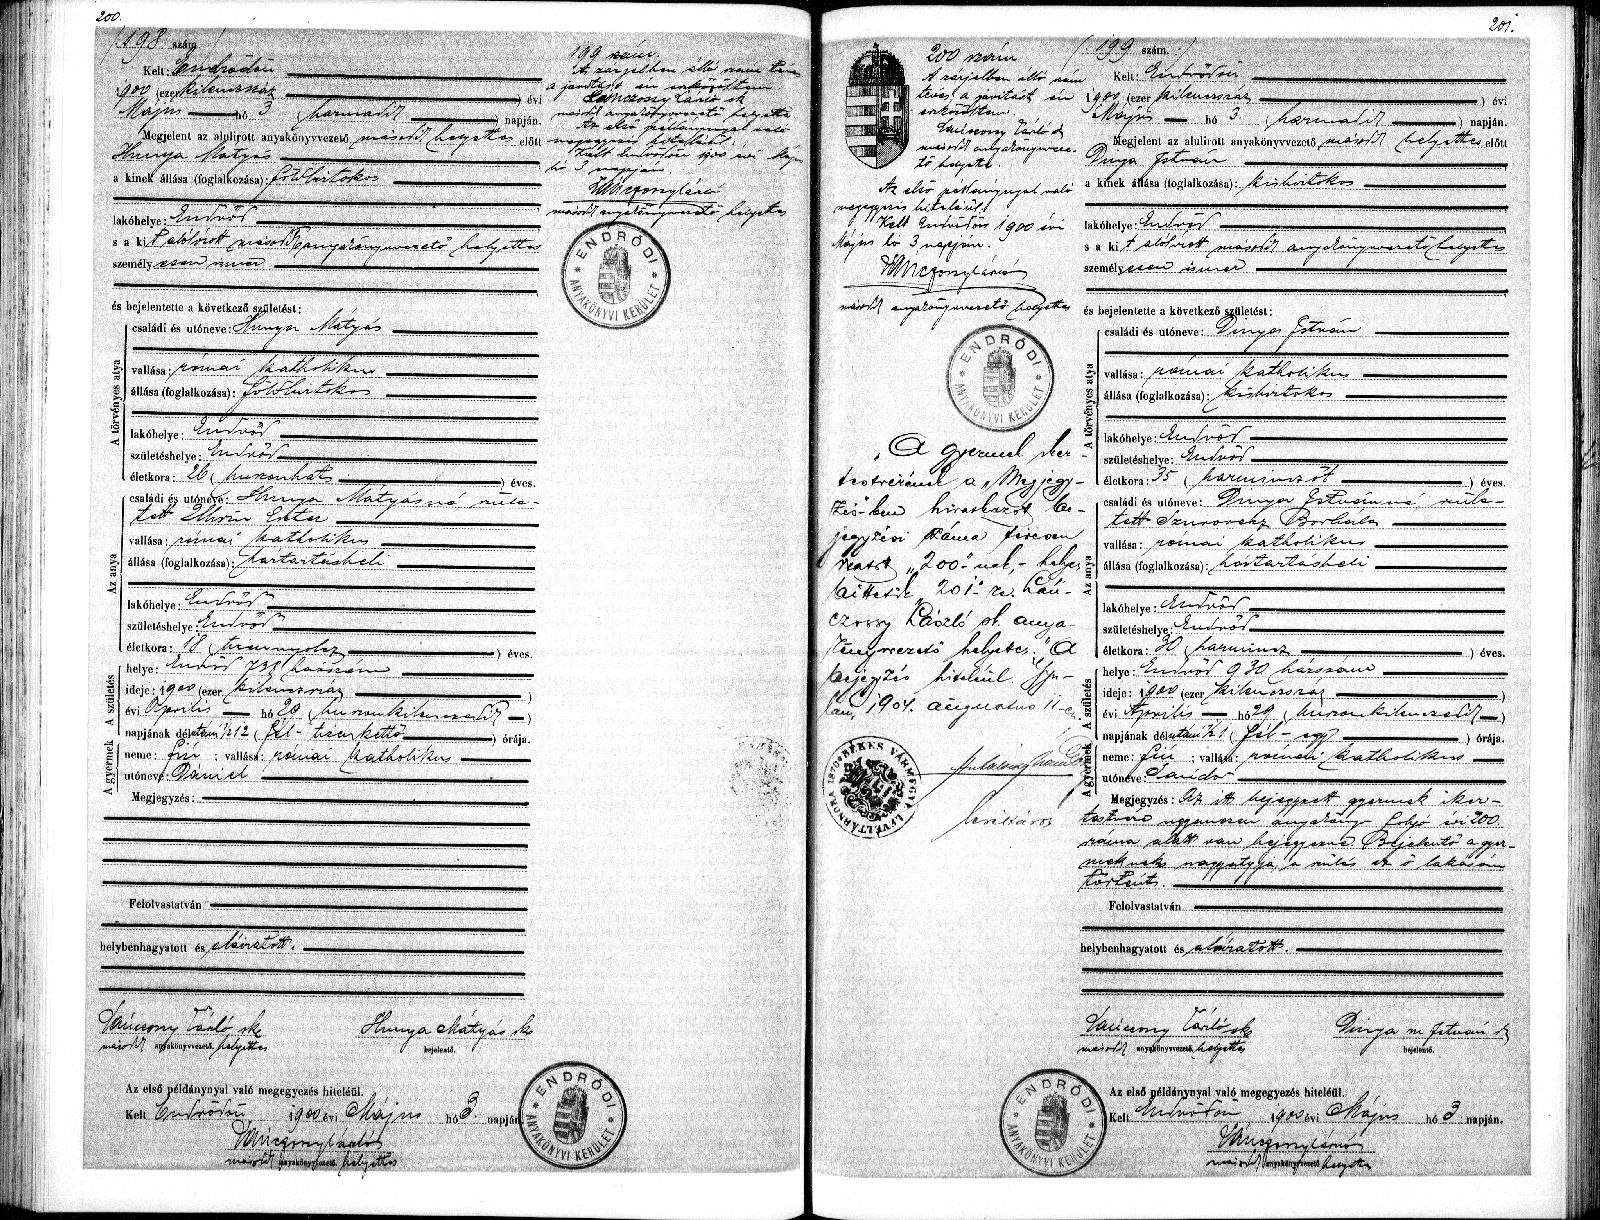 200.
(198 szám
Kelt: Endrődön
1900 (ezer kilencszáz) évi
Május hó 3 (harmadik) napján.
Megjelent az alulirott anyakönyvvezető másodk helyettes előtt
Hunya Mátyás
a kinek állása (foglalkozása): földbirtokos
lakóhelye: Endrőd
s a kit alólirott másodk anyakönyvvezető helyettes
személyesen ismer
és bejelentette a következő születést:
A törvényes atya
családi és utóneve: Hunya Mátyás
vallása: római katholikus
állása (foglalkozása): földbirtokos
lakóhelye: Endrőd
születéshelye: Endrőd
életkora: 26 (huszonhat) éves.
Az anya
családi és utóneve: Hunya Mátyásné szüle-
tett Eszter
vallása: római katholikus
állása (foglalkozása): háztartásbeli
lakóhelye: Endrőd
születéshelye: Endrőd
életkora: 18 (tizennyolcz) éves.
A születés
helye: Endrőd házszám
ideje: 1900 (ezer kilencszáz)
évi Április hó 28 (
napjának délután 1/2 12 (fél-tizenkettő) órája.
A gyermek
neme: fiú; vallása: római katholikus
utóneve: Dániel
Megjegyzés:
Felolvastatván
helybenhagyatott és aláiratott.
Lánczossy László sk
másodk anyakönyvvezető. helyettes
Hunya Mátyás sk
bejelentő.
Az első példánynyal való megegyezés hiteléül.
Kelt Endrődön 1900 évi Május hó 3 napján
másodk anyakönyvvezető helyettes
ENDRŐDI
ANYAKÖNYVI KERÜLET
199 szám
A zárjelben álló szám téves
a javitást én eszközöltem
Lánczossy László sk
másodk anyakönyvvezető helyettes
Az első példánynyal való
megegyezés hiteléül.
Kelt Endrődön 1900 évi Május
hó 3 napján.
másodk anyakönyvvezető helyettes
ENDRŐDI
ANYAKÖNYVI KERÜLET
201.
200 szám
A zárjelben álló szám
téves, a javitást én
eszközöltem
Lánczossy László sk
másodk anyakönyvveze-
tő helyettes.
Az első példánynyal való
megegyezés hiteléül.
Kelt Endrődön 1900 évi
Május hó 3 napján.
másodk anyakönyvvezető helyettes
ENDRŐDI
ANYAKÖNYVI KERÜLET
"A gyermek iker-
testvérének a "Megjegy-
zés"-ben hivatkozott be-
jegyzési száma tévesen
"200"-nak, helyes-
bittetik "201"-re. Lán-
czossy László sk. anya-
könyvvezető helyettes." A
bejegyzés hiteléül. Gyu-
lán, 1904. augusztus 11-én
BÉKÉS VÁRMEGYE LEVÉLTÁRNOKA 1870
levéltáros
(199 szám.)
Kelt: Endrődön
1900 (ezer kilenczszáz) évi
Május hó 3 (harmadik) napján.
Megjelent az alulirott anyakönyvvezető másodk helyettes előtt
Dinya István
a kinek állása (foglalkozása): kisbirtokos
lakóhelye: Endrőd
s a kit alólirott másodk anyakönyvvezető helyettes
személyesen ismer
és bejelentette a következő születést:
A törvényes atya
családi és utóneve: Dinya István
vallása: római katholikus
állása (foglalkozása): kisbirtokos
lakóhelye: Endrőd
születéshelye: Endrőd
életkora: 35 (harminczöt) éves.
Az anya
családi és utóneve: Dinya Istvánné szüle-
tett Szurovecz Borbála
vallása: római katholikus
állása (foglalkozása): háztartásbeli
lakóhelye: Endrőd
születéshelye: Endrőd
életkora: 30 (harmincz) éves.
A születés
helye: Endrőd 930 házszám
ideje: 1900 (ezer kilenczszáz)
évi Április hó 29 (huszonkilenczedik)
napjának délután 1/2 1 (fél-egy) órája.
A gyermek
neme: fiú; vallása: római katholikus
utóneve: Sándor
Megjegyzés: Az itt bejegyzett gyermek iker-
testvére ugyanezen anyakönyv folyó évi 200
száma alatt van bejegyezve. Bejelentő a gyer-
meknek nagyatyja, a szülés az ő lakásán
történt.
Felolvastatván
helybenhagyatott és aláiratott.
Lánczossy László sk
másodk anyakönyvvezető. helyettes
Dinya m István sk
bejelentő.
Az első példánynyal való megegyezés hiteléül.
Kelt Endrődön 1900 évi Május hó 3 napján.
másodk anyakönyvvezető helyettes
ENDRŐDI
ANYAKÖNYVI KERÜLET